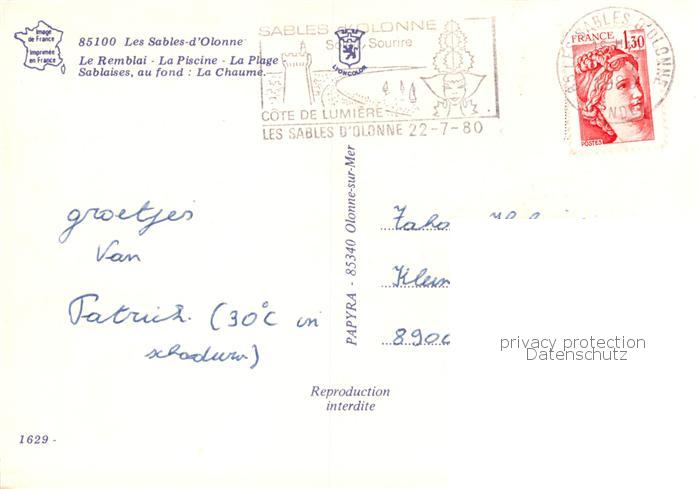 Image
de France
Imprimée
en France
85100 Les Sables-d'Olonne
Le Remblai - La Piscine - La Plage
Sablaises, au fond : La Chaume.
SABLES D'OLONNE
Sourire
LYONCOLOR
CÔTE DE LUMIÈRE
LES SABLES D'OLONNE 22-7-80
LES SABLES D'OLONNE
FRANCE
1,30
POSTES
PAPYRA - 85340 Olonne-sur-Mer
groetjes
Van
Patrick. (30°C in
schaduw)
Klein
890
privacy protection
Datenschutz
Reproduction
interdite
1629 -